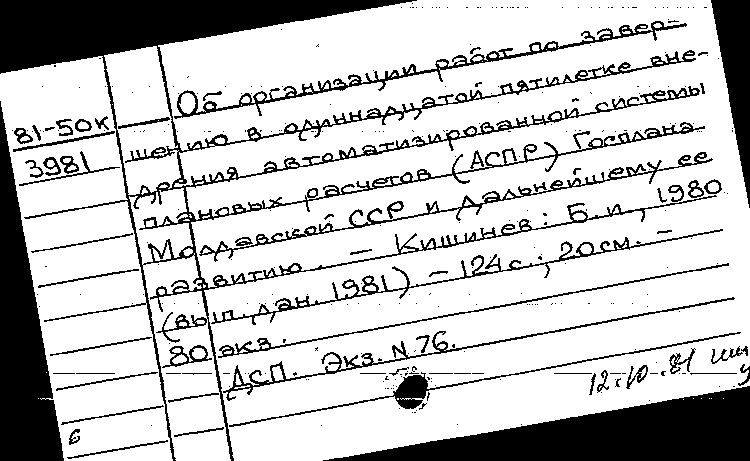 Об организации работ по завер-
81-50к
шению в одиннадцатой пятилетке вне-
3981
дрения автоматизированной системы
плановых расчетов (АСПР) Госплана
Молдавской ССР и дальнейшему ее
развитию. — Кишинев: Б.и., 1980
(вып. дан. 1981). — 124 с.; 20 см. —
80 экз.
ДСП. Экз. N 76.
12.10.81
б